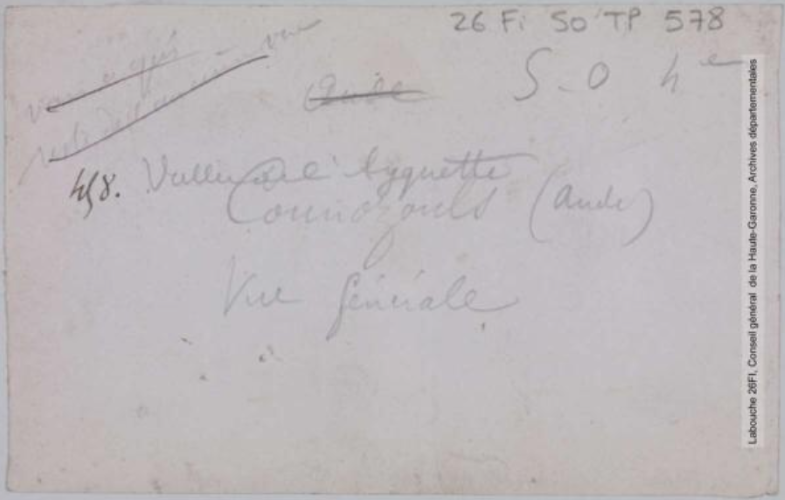 26 Fi SO TP 578
S-O 4e
Aude
458. Vallée de l'Ayguette
Counozouls (Aude)
Vue générale
Labouche 26FI, Conseil général de la Haute-Garonne, Archives départementales